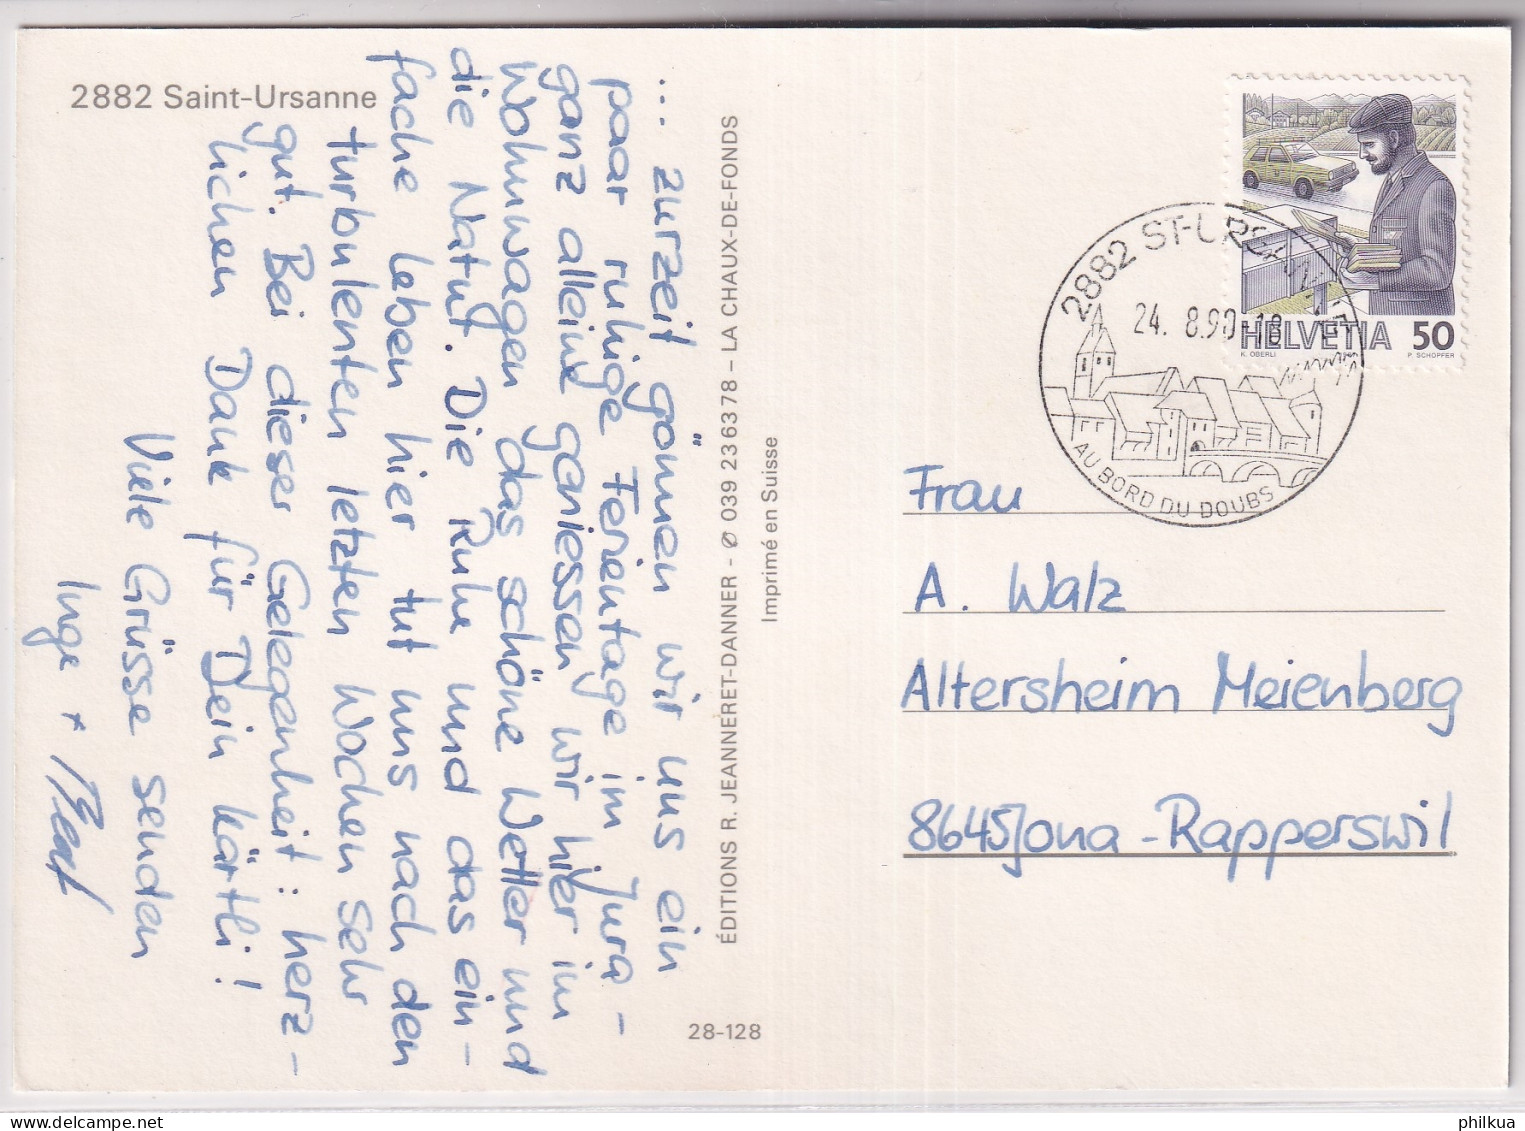 2882 Saint-Ursanne
... zurzeit gönnen wir uns ein
paar ruhige Ferientage im Jura -
ganz alleine geniessen wir hier im
Wohnwagen das schöne Wetter und
die Natur. Die Ruhe und das ein-
fache Leben hier tut uns nach den
turbulenten letzten Wochen sehr
gut. Bei dieser Gelegenheit: herz-
lichen Dank für Dein Kärtli!
Viele Grüsse senden
Inge + Beat
ÉDITIONS R. JEANNERET-DANNER - Ø 039 23 63 78 – LA CHAUX-DE-FONDS
Imprimé en Suisse
28-128
HELVETIA 50
K. OBERLI P. SCHOPFER
2882 ST-URSANNE
24. 8.90-18
AU BORD DU DOUBS
Frau
A. Walz
Altersheim Meienberg
8645 Jona-Rapperswil
philkua